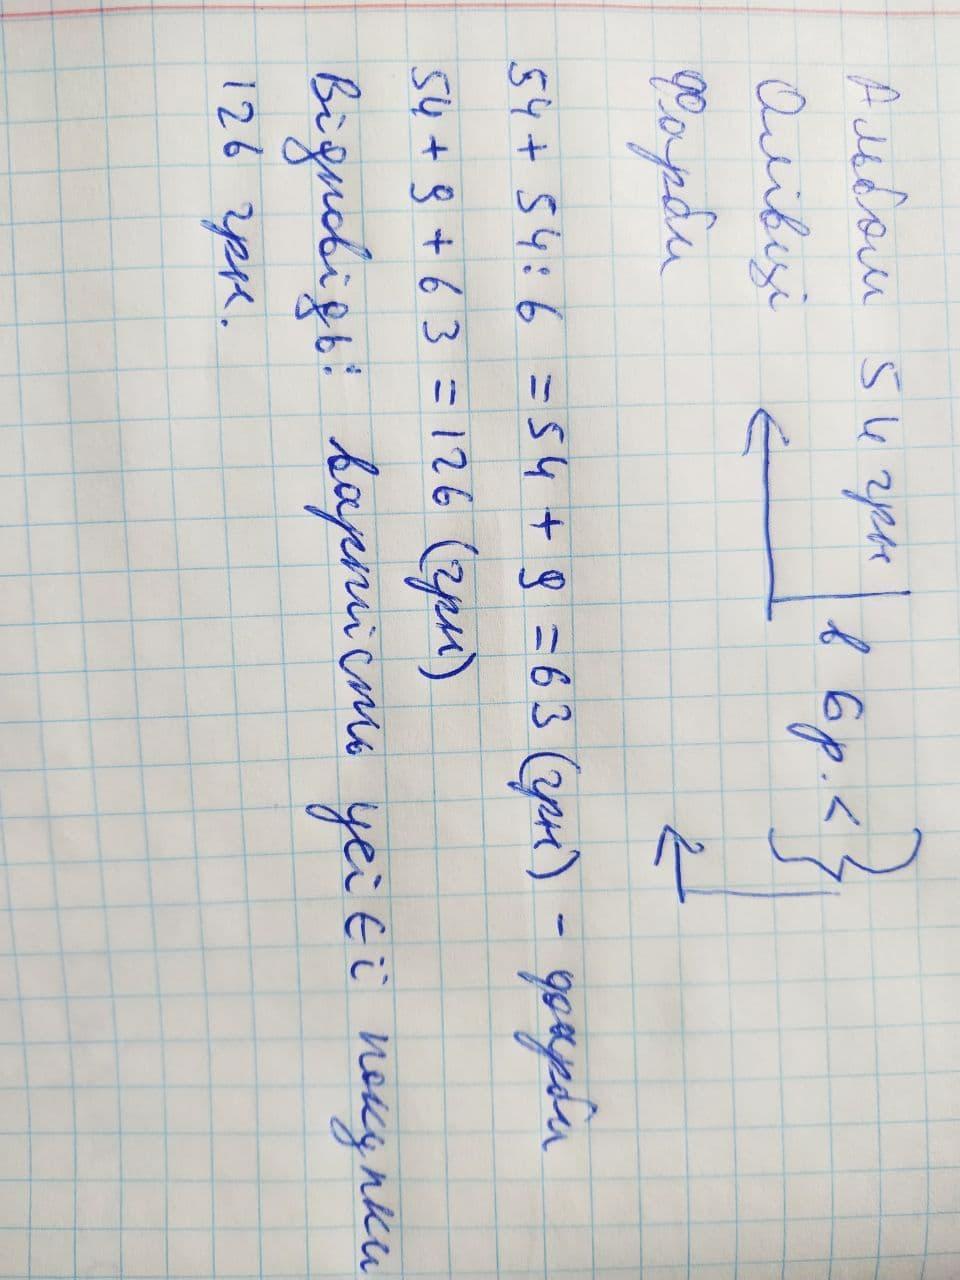 Альбом 54 грн
Олівці в 6р. <
Фарби
54 + 54 : 6 = 54 + 9 = 63 (грн) - фарби
54 + 9 + 63 = 126 (грн)
Відповідь: вартість усієї покупки
126 грн.